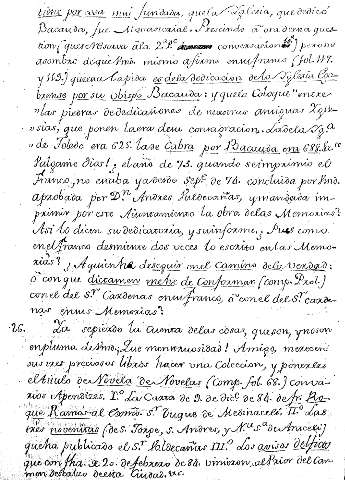 tiene por cosa mui fundada, que la Yglesia, que dedicó
Bacauda, fue Monacal. Prescindo à ora de esta ques
tion; que reservo à la 2.ª conversacion: pero no
asombre de que Vm mismo afirma en su franco (fol. 117.
y 119.) que esa lapida es de la dedicacion de la Yglesia
por su Obispo Bacauda: y que la coloque entre
las piedras de dedicaciones de nuestras antiguas Ygle
sias, que ponen la era de su consagracion. La de la Yg.ª
de Toledo era 625. la de Cabra por Bacauda era 688. &c.
Valgame Dios! el año de 75. quando se imprimió el
franco, no estaba ya desde Sept.e de 74. concluida por Vmd.
aprobada por D.n Andres Valdecañas, y mandada im
primir por este Ayuntamiento la obra de las Memorias?
Asi lo dicen su dedicatoria, y su informe. Pues como
en el franco desmiente dos veces lo escrito en las Memo
rias? ¿A quien ha de seguir en el Camino de la Verdad:
ò con que dictamen me he de Conformar (comp. Prol.)
con el del S.r Cardenas en su franco, ò con el del S.r Carde
nas en sus Memorias?
26. La sepirido la Cuenta de las cosas, que son, y no son
en pluma de Vmd. Que monstruosidad! Amigo, merecen
sus tres preciosos libros hacer una Coleccion, y ponerles
el titulo de Novela de Novelas (comp. fol. 68.) con va
rios Apendices. I.º La Carta de 9. de Dic.e de 84. de fr. Ro
que Ramos al Exmo. S.r Duque de Medinaceli. II.º Las
tres novenitas (de S. Jorge, S. Andres, y N.ra S.ra de Araceli)
que ha publicado el S.r Valdecañas III.º Los
que con fha. de 20. de febrero de 84. vinieron al Prior del Car
men descalzo de esta Ciudad. &c.